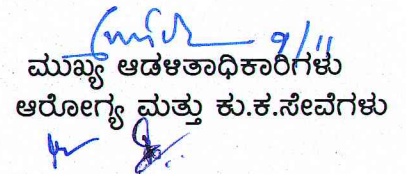 9/11
ಮುಖ್ಯ ಆಡಳಿತಾಧಿಕಾರಿಗಳು
ಆರೋಗ್ಯ ಮತ್ತು ಕು.ಕ.ಸೇವೆಗಳು